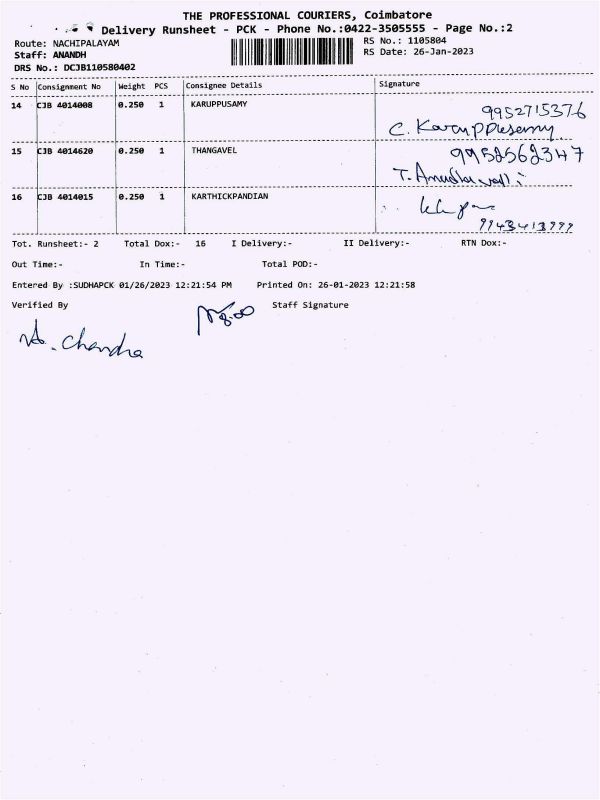 THE PROFESSIONAL COURIERS, Coimbatore
Delivery Runsheet - PCK - Phone No.:0422-3505555 - Page No.:2
Route: NACHIPALAYAM RS No.: 1105804
Staff: ANANDH RS Date: 26-Jan-2023
DRS No.: DCJB110580402
S No Consignment No Weight PCS Consignee Details Signature
14 CJB 4014008 0.250 1 KARUPPUSAMY 9952715376
C. Karuppusamy
15 CJB 4014620 0.250 1 THANGAVEL 9952562347
T.
16 CJB 4014015 0.250 1 KARTHICKPANDIAN
9943413999
Tot. Runsheet:- 2 Total Dox:- 16 I Delivery:- II Delivery:- RTN Dox:-
Out Time:- In Time:- Total POD:-
Entered By :SUDHAPCK 01/26/2023 12:21:54 PM Printed On: 26-01-2023 12:21:58
Verified By Staff Signature
Chandra